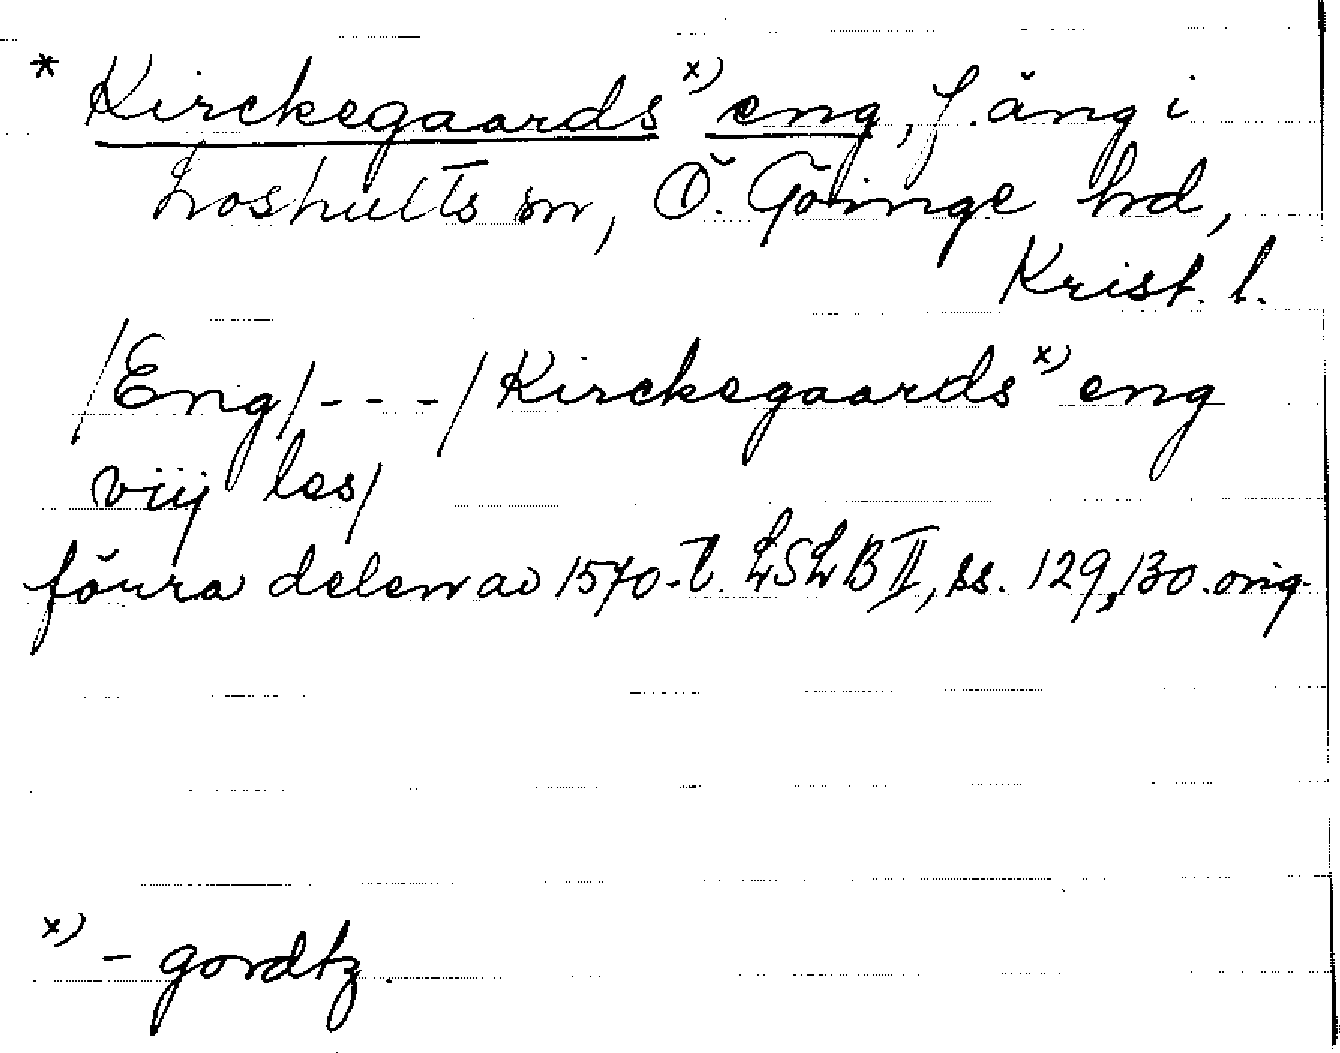 * Kirckegaards x) eng, f. äng i
Loshults sn, Ö. Göinge hd,
Krist. l.
/Eng/---/Kirckegaards x) eng
viij las/
förra delen av 1570-t. LSLB II, ss. 129, 130. orig.
x) - gordtz.